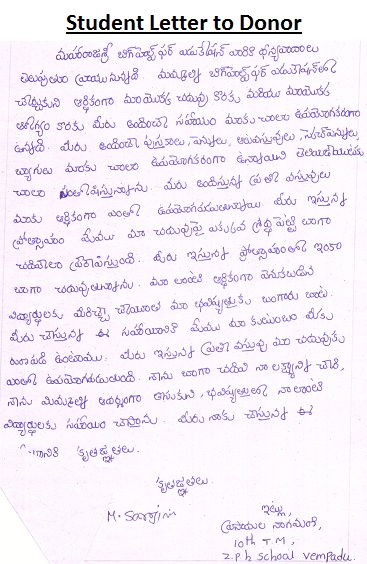 Student Letter to Donor
మహారాజశ్రీ బిగ్‌హెల్ప్ ఫర్ ఎడుకేషన్ వారికి ధన్యవాదాలు
తెలుపుతూ వ్రాయునున్నది. మమ్మల్ని బిగ్‌హెల్ప్ ఫర్ ఎడుకేషన్‌లో
చేర్చుకుని ఆర్థికంగా మాయొక్క చదువు కొరకు మరియు మాయొక్క
ఆరోగ్యం కొరకు మీరు అందించే సహాయం మాకు చాలా ఉపయోగకరంగా
ఉన్నది. మీరు అందించే పుస్తకాలు, పెన్నులు, ఆటవస్తువులు, స్కెచ్‌పెన్నులు,
బ్యాగులు మాకు చాలా ఉపయోగకరంగా ఉన్నాయని తెలియజేయుటకు
చాలా సంతోషిస్తున్నాను. మీరు అందిస్తున్న ప్రతి వస్తువులు
మాకు ఆర్థికంగా ఎంతో ఉపయోగపడుతున్నాయి మీరు ఇస్తున్న
ప్రోత్సాహం మేము మా చదువుపై ఎక్కువ శ్రద్ధపెట్టి బాగా
చదివేలా ప్రేరేపిస్తుంది. మీరు ఇస్తున్న ప్రోత్సాహంతో ఇంకా
బాగా చదువుతున్నాను. మా లాంటి ఆర్థికంగా వెనుకబడిన
విద్యార్థులకు మీరిచ్చే చేయూత మా భవిష్యత్తుకు బంగారు బాట.
మీరు చేస్తున్న ఈ సహాయానికి మేము మా కుటుంబం మీకు
రుణపడి ఉంటాము. మీరు ఇస్తున్న ప్రతి వస్తువు మా చదువుకు
ఎంతో ఉపయోగపడుతుంది. నేను బాగా చదివి నా లక్ష్యాన్ని చేరి,
నేను మిమ్మల్ని ఆదర్శంగా తీసుకుని, భవిష్యత్తులో నా లాంటి
విద్యార్థులకు సహాయం చేస్తాను. మీరు నాకు చేస్తున్న ఈ
కృతజ్ఞతలు.
కృతజ్ఞతలు.
ఇట్లు,
నాగమణి,
10th T.M,
Z.P.h school vempadu.